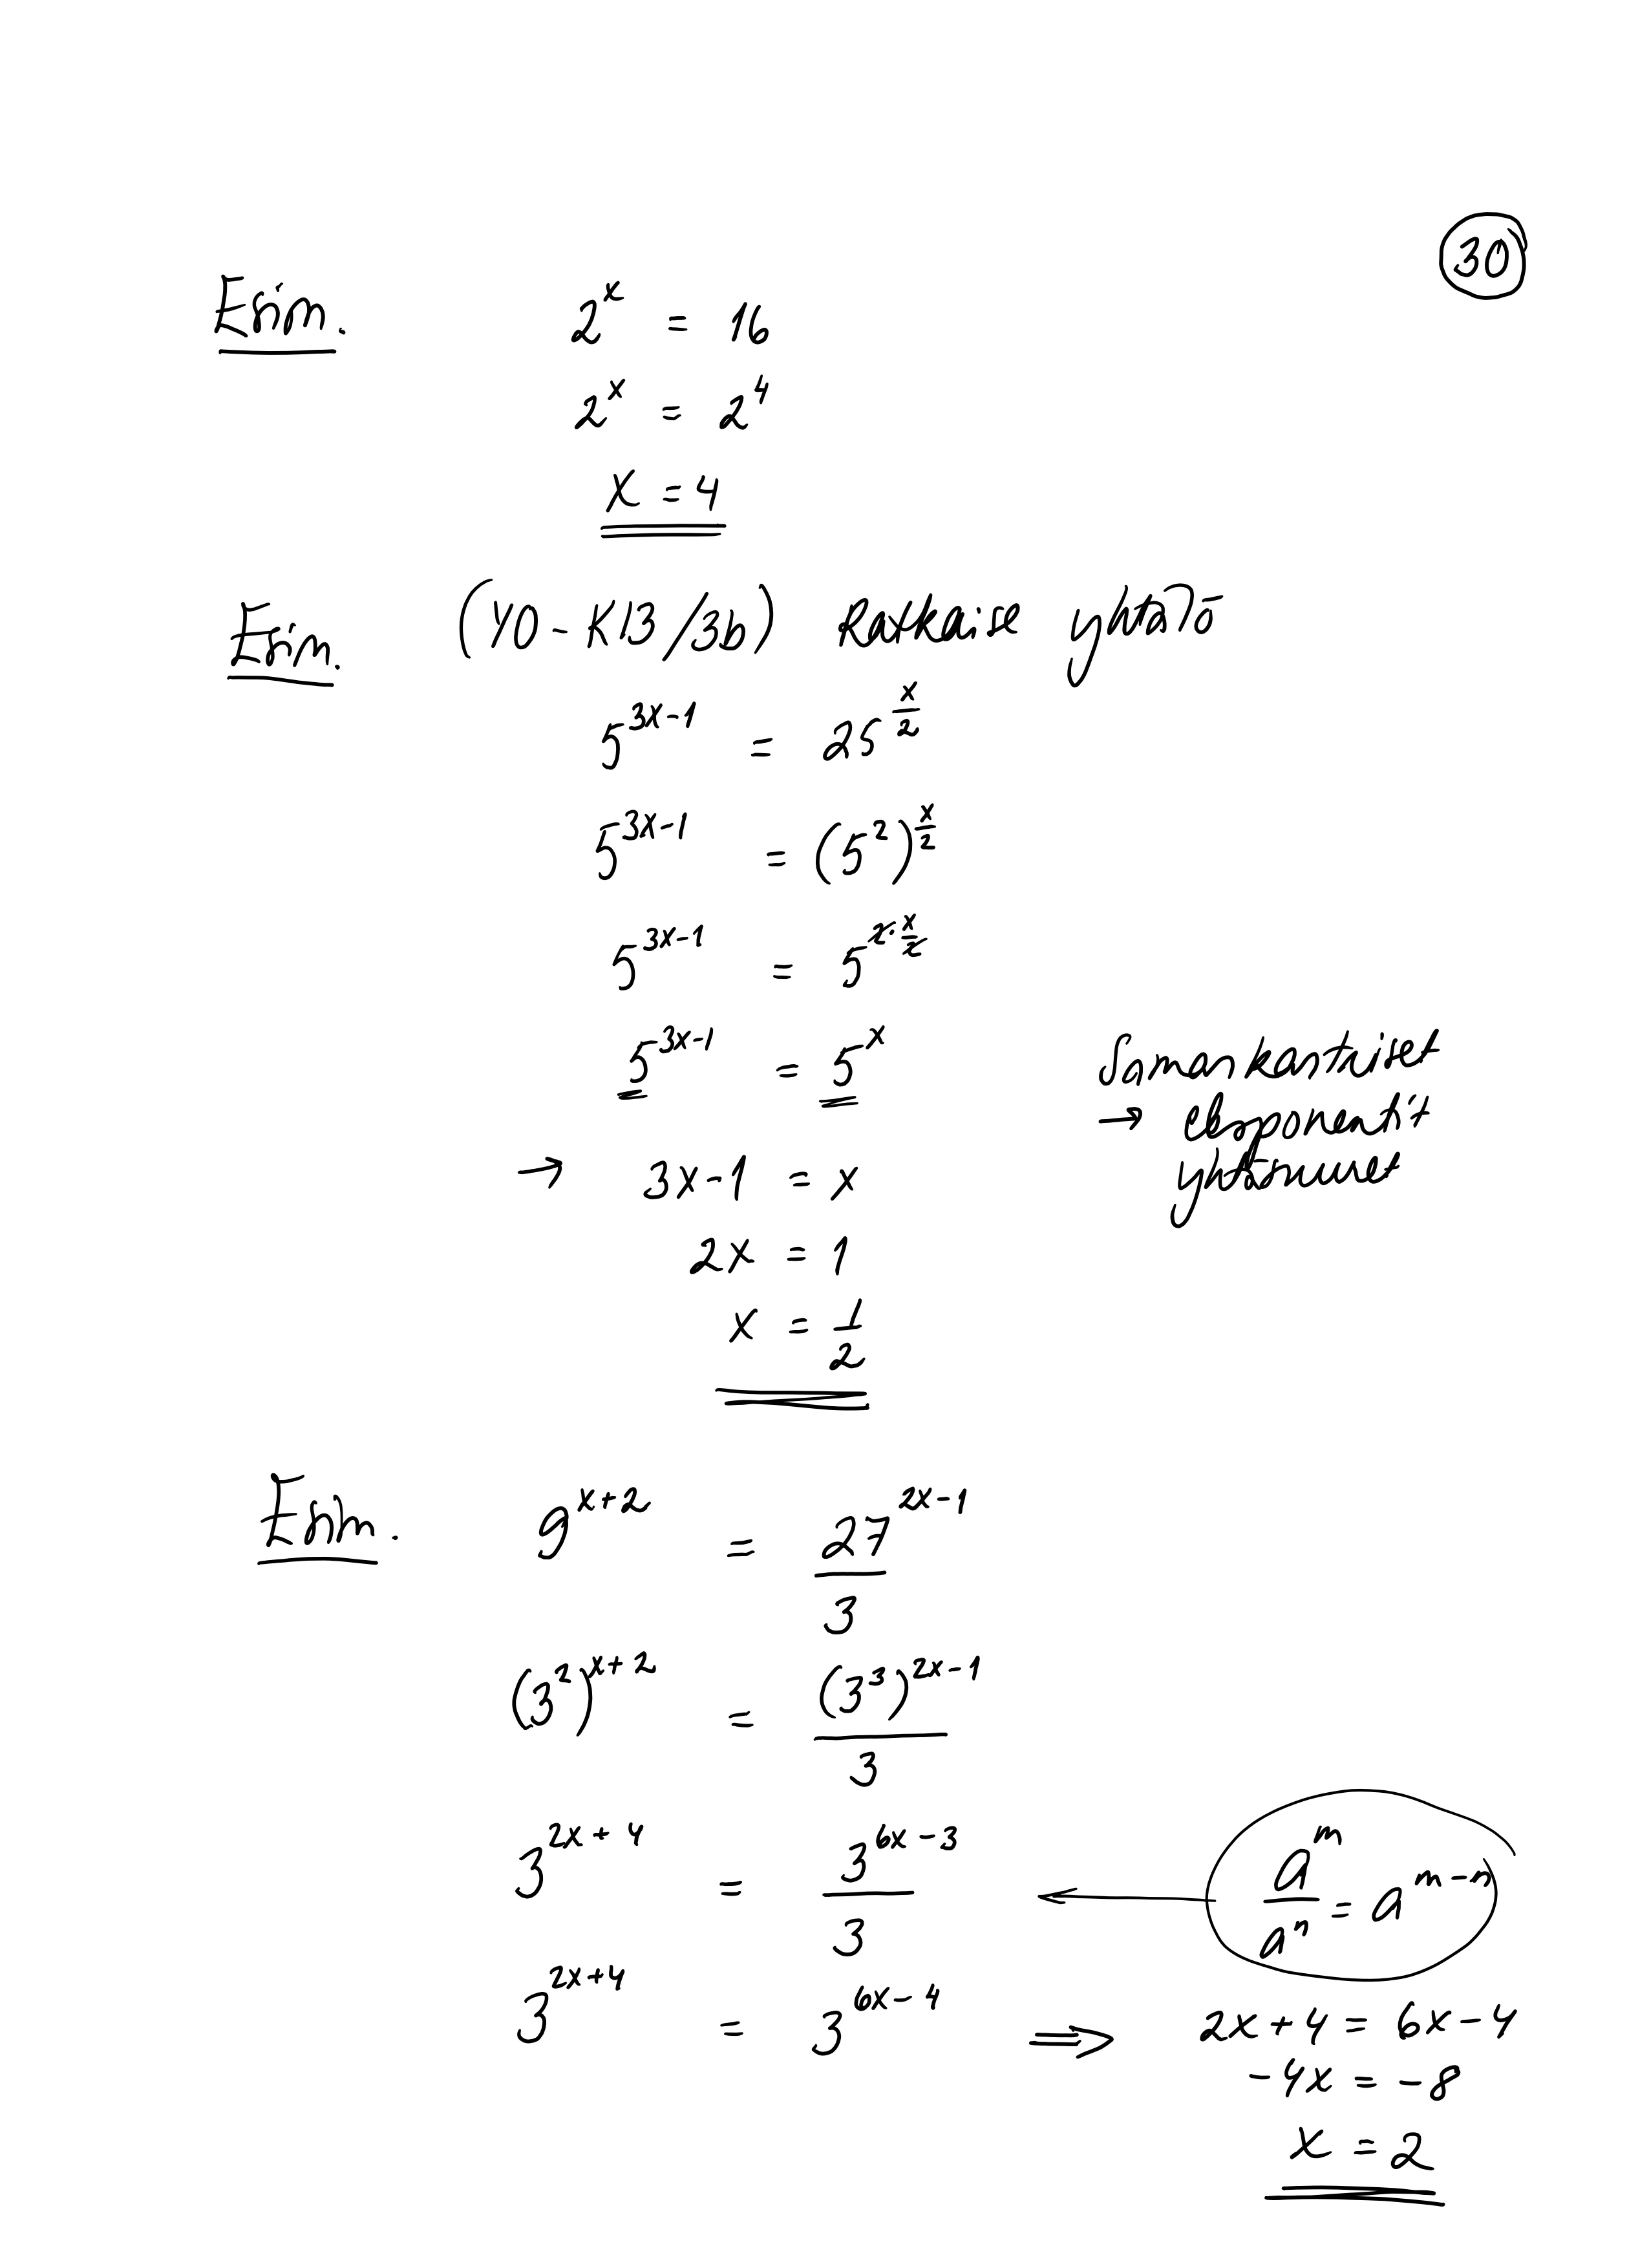 30
Esim. 2^x = 16
2^x = 2^4
x = 4
Esim. (YO-K13/3b) Ratkaise yhtälö
5^{3x-1} = 25^{\frac{x}{2}}
5^{3x-1} = (5^2)^{\frac{x}{2}}
5^{3x-1} = 5^{2·\frac{x}{2}}
5^{3x-1} = 5^x Samankantaiset
→ eksponentit
yhtäsuuret
→ 3x-1 = x
2x = 1
x = \frac{1}{2}
Esim. 9^{x+2} = \frac{27^{2x-1}}{3}
(3^2)^{x+2} = \frac{(3^3)^{2x-1}}{3}
3^{2x+4} = \frac{3^{6x-3}}{3} ← \frac{a^m}{a^n} = a^{m-n}
3^{2x+4} = 3^{6x-4} ⇒ 2x+4 = 6x-4
-4x = -8
x = 2